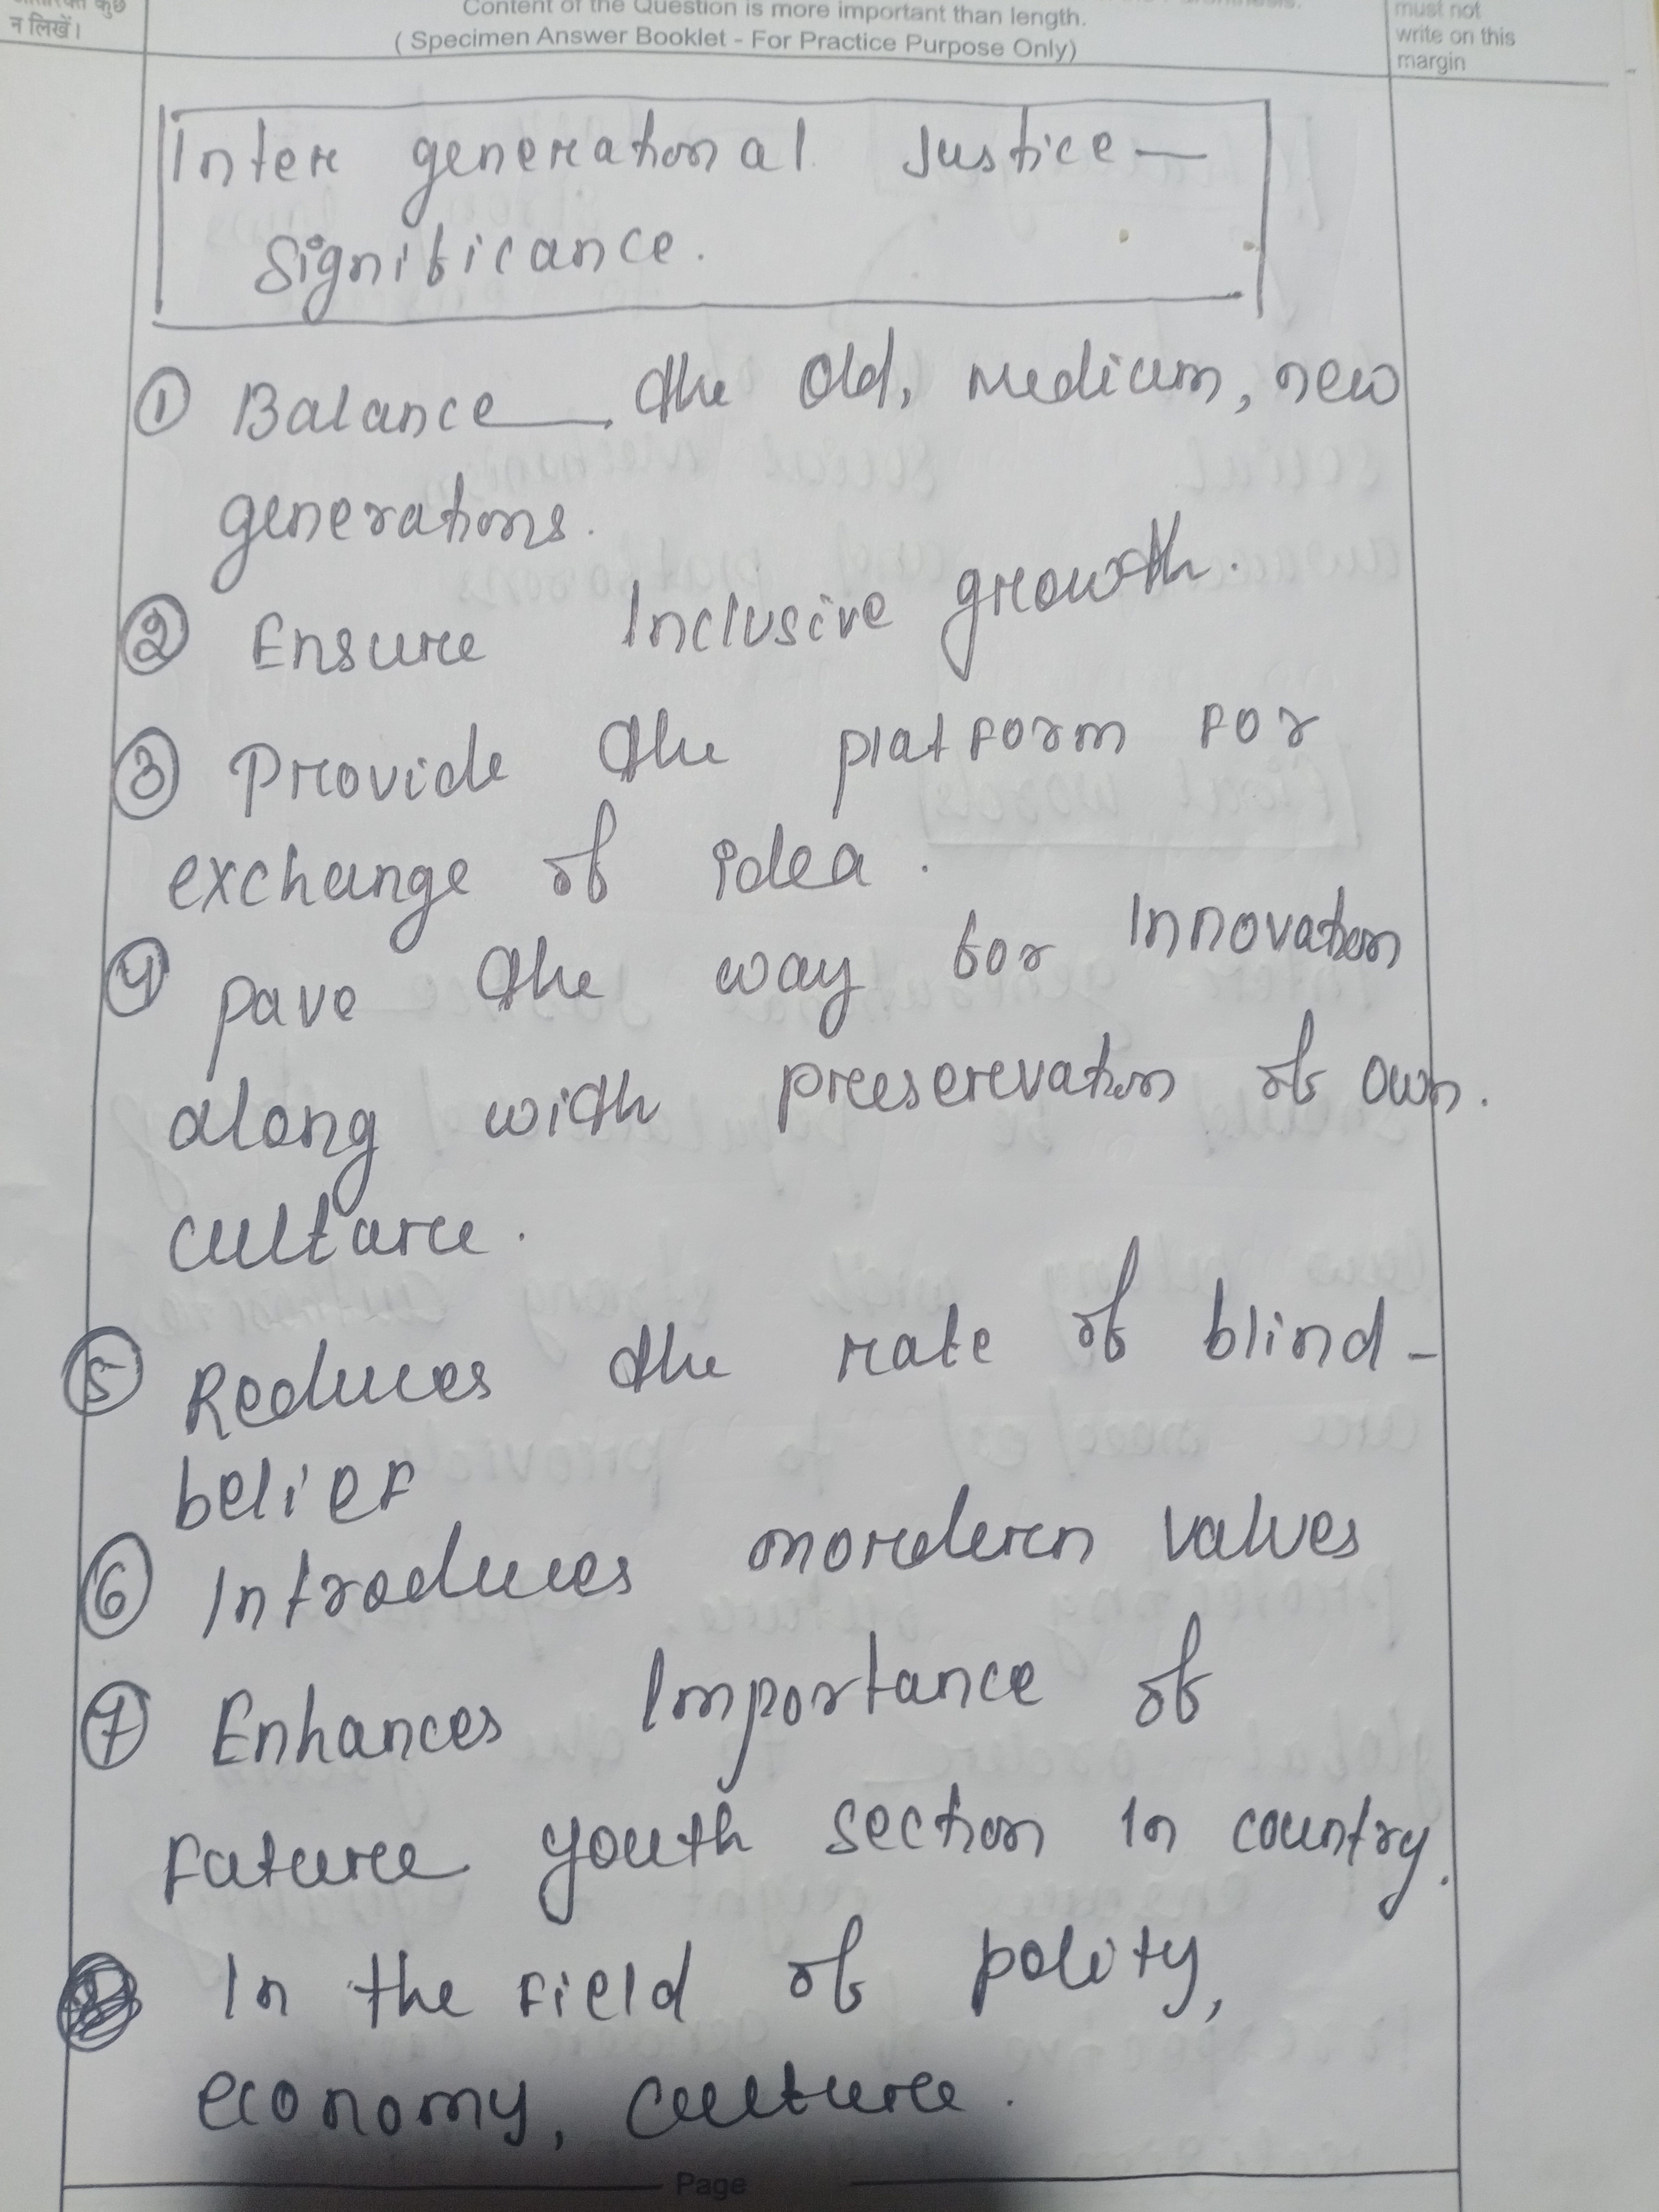 कुछ
न लिखें।
Content of the Question is more important than length.
( Specimen Answer Booklet - For Practice Purpose Only)
must not
write on this
margin
Inter generational Justice —
Significance.
① Balance the Old, Medium, new
generations.
② Ensure Inclusive growth.
③ Provide the platform for
exchange of idea.
④ pave the way for Innovation
along with preeserevation of own.
culture.
⑤ Reduces the rate of blind-
belief
⑥ Introduces moredern values
⑦ Enhances Importance of
Future youth section in country.
In the field of polity,
economy, culture.
Page